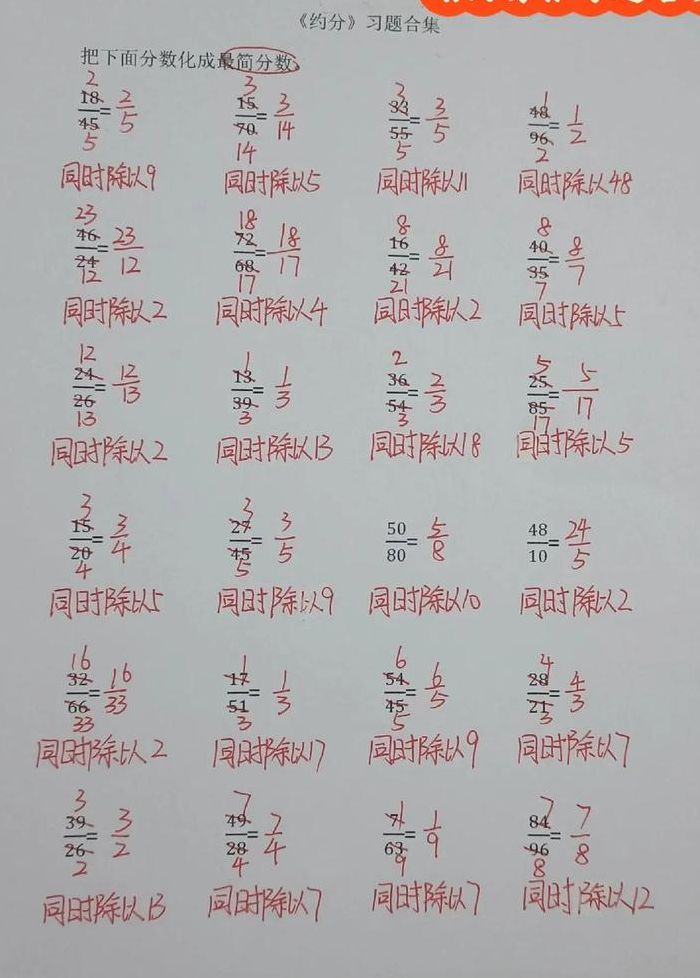 《约分》习题合集
把下面分数化成最简分数。
2 3 3 1
18/45=2/5 15/70=3/14 33/55=3/5 48/96=1/2
5 14 5 2
同时除以9 同时除以5 同时除以11 同时除以48
23 18 8 8
46/24=23/12 72/68=18/17 16/42=8/21 40/35=8/7
12 17 21 7
同时除以2 同时除以4 同时除以2 同时除以5
12 1 2 5
24/26=12/13 13/39=1/3 36/54=2/3 25/85=5/17
13 3 3 17
同时除以2 同时除以13 同时除以18 同时除以5
3 3
15/20=3/4 27/45=3/5 50/80=5/8 48/10=24/5
4 5
同时除以5 同时除以9 同时除以10 同时除以2
16 1 6 4
32/66=16/33 17/51=1/3 54/45=6/5 28/21=4/3
33 3 5 3
同时除以2 同时除以17 同时除以9 同时除以7
3 7 1 7
39/26=3/2 49/28=7/4 7/63=1/9 84/96=7/8
2 4 9 8
同时除以13 同时除以7 同时除以7 同时除以12